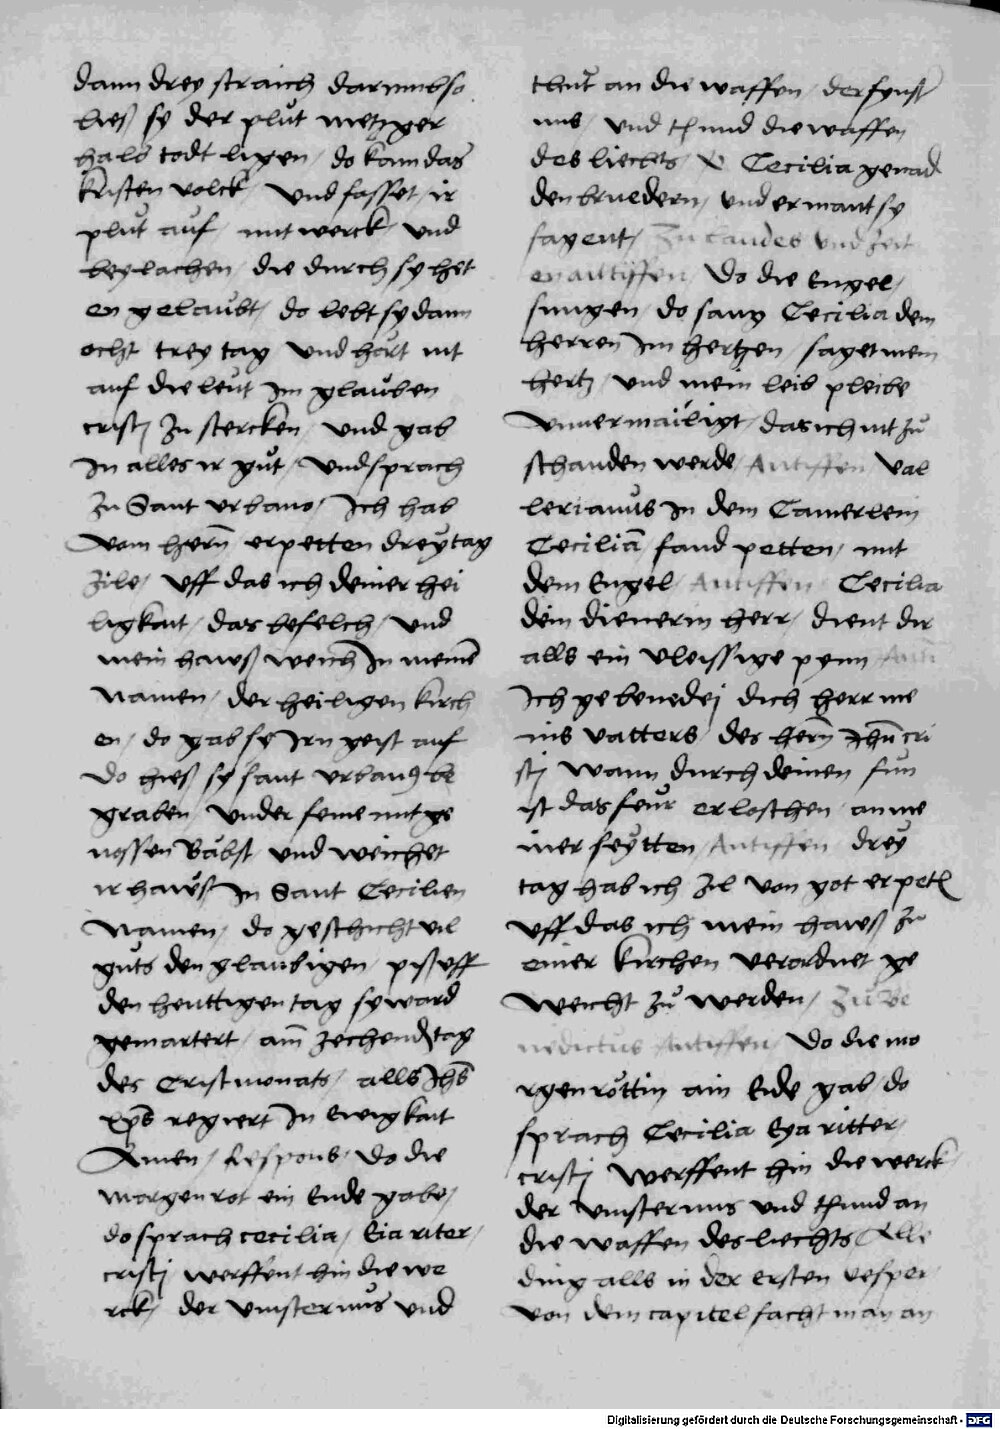 dann drey straich darumb so
hieß sy der plůt metzger
halb todt ligen / do kam das
kristen volck / Und fasset ir
plůt auf / mit werck / und
bey lachen / die durch sy het
en gelaubt / do lebt sy dann
ocht trey tag Und hört nit
auf die leut Im glauben
cristj zu stercken / Und gab
In alles ir gůt / Und sprach
zu Sant urbano / Ich hab
vom herrn̄ erpetten drey tag
zile / Uff das ich deiner hei
ligkait / das befelch / Und
mein hawß weich In meinē
Namen / der heiligen kirch
en / do gab sy Irn geist auf
do hieß sy sant urbanꝰ be
graben / Under seine mit ge
nossen Bäbst / und weichet
ir hawß In Sant Cecilien
Namen / do geschicht vil
gůts den glaubigen / piß uff
den heuttigen tag sy ward
gemartert / am̄ zechendtag
des Cristmonats / alls Ihs̄
xp̄s regiert In Ewigkait
Amen / Respons / Do die
morgenrot ein Ende gabe /
do sprach cecilia / Eia riter /
cristj werffent hin die we
rck / der Vinsternus und
thůt an die waffen / der fynst
nus / und thund die waffen
des liechts / V Cecilia genad
den bruedern / Und ermant sy
sagent / Zu laudes Und zeit
en antiffen / Do die Engel /
sungen / do sang Cecilia dem
herren Im hertzen / saget mein
hertz / und mein leib pleibe
Unvermailigt / das ich nit zů
schanden werde / Antiffen / Val
lerianus In dem Camerlein
Ceciliā / fand petten / mit
dem Engel / Antiffen / Cecilia
dein dienerin herr / dient dir
alls ein vleissige peynn / Anti
Ich gebenedej dich herr me
ins vatters / des herrn̄ Ihū cri
stj wann durch deinen sun
ist das feur erloschen / an me
iner seytten / Antiffen / drey
tag hab ich zil von got erpett
uff das ich mein hawß zů
einer kirchen verordnet ge
weicht zů werden / Zů Be
nedictus Antiffen / Do die mo
rgenröttin ain Ende gab / do
sprach Cecilia Eya ritter /
cristj werffent hin die werck /
der vinsternus und thund an
die waffen des liechts / Alle
ding alls in der ersten vesper /
von dem capitel facht man an
Digitalisierung gefördert durch die Deutsche Forschungsgemeinschaft - DFG